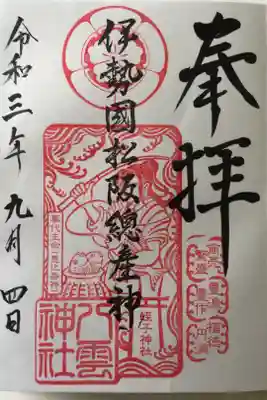 奉拝
伊勢國松阪總産神
令和三年九月四日
蛭子神社
八雲神社